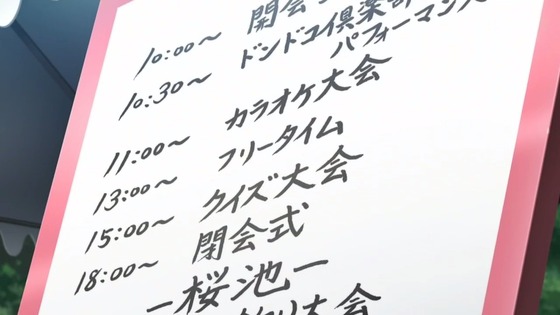 10:00～ 開会
10:30～ ドンドコ倶楽部
パフォーマンス
11:00～ カラオケ大会
13:00～ フリータイム
15:00～ クイズ大会
18:00～ 閉会式
－桜池－
大会